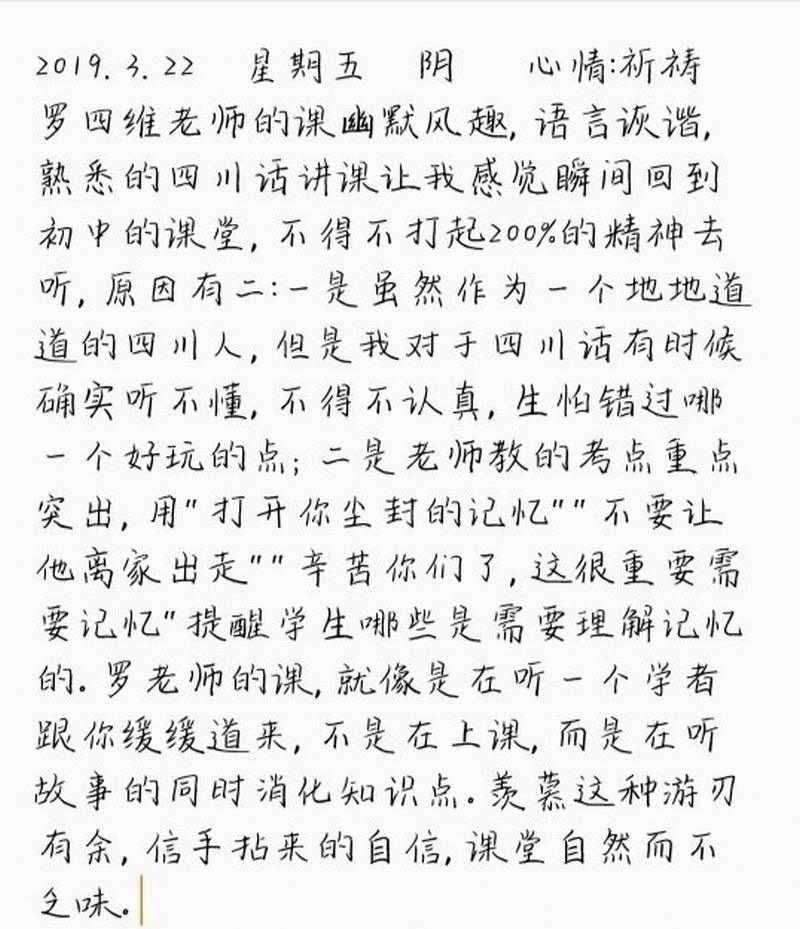 2019.3.22 星期五 阴 心情:祈祷
罗四维老师的课幽默风趣,语言诙谐,
熟悉的四川话讲课让我感觉瞬间回到
初中的课堂,不得不打起200%的精神去
听,原因有二:一是虽然作为一个地地道
道的四川人,但是我对于四川话有时候
确实听不懂,不得不认真,生怕错过哪
一个好玩的点;二是老师教的考点重点
突出,用"打开你尘封的记忆""不要让
他离家出走""辛苦你们了,这很重要需
要记忆"提醒学生哪些是需要理解记忆
的.罗老师的课,就像是在听一个学者
跟你缓缓道来,不是在上课,而是在听
故事的同时消化知识点。羡慕这种游刃
有余,信手拈来的自信,课堂自然而不
乏味。